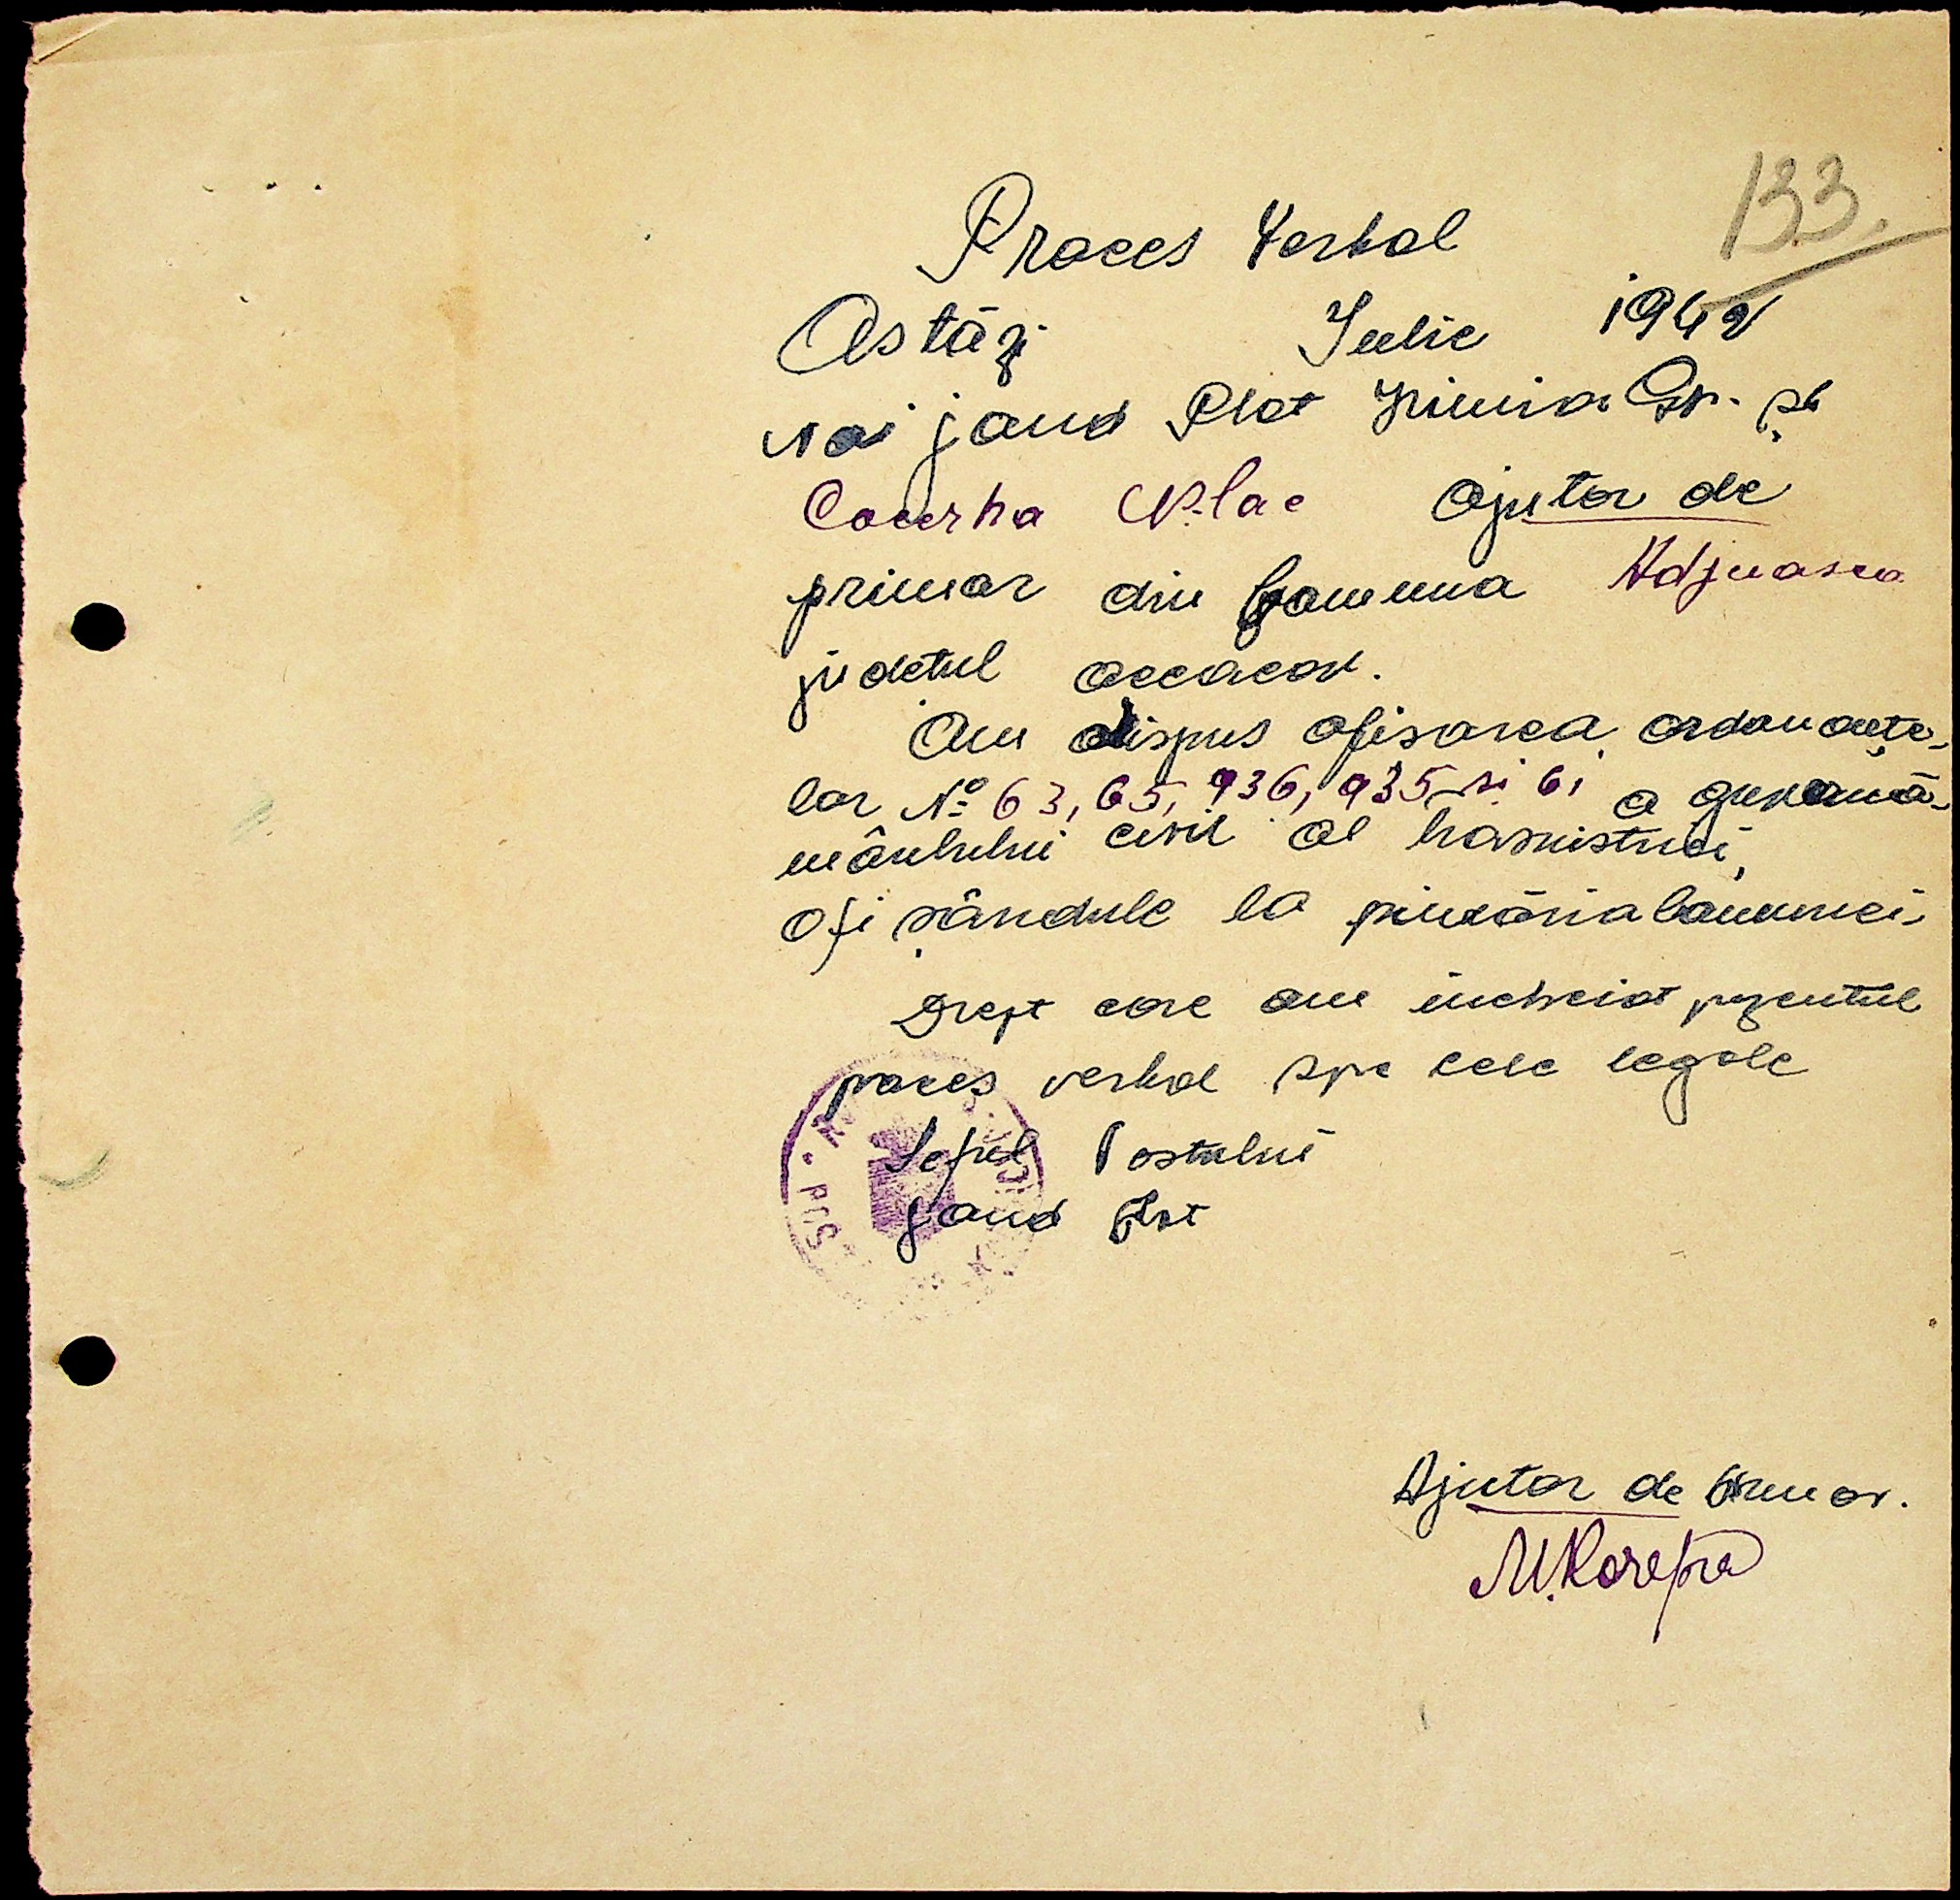 133.
Proces Verbal
Astăzi Iulie 1942
noi jand Plot Gr. și
Nilae ajutor de
primar din Comuna Adjiaska
judetul oceacov.
Am dispus afisarea ordonanțe-
lor No 63, 65, 936, 935 si 61 a guvernă-
mântului civil al trasnistriei,
afisândule la primăria comunei
Drept care am incheiat prezentul
proces verbal spre cele legale
Seful Postului
jand Plot
Ajutor de Primar.